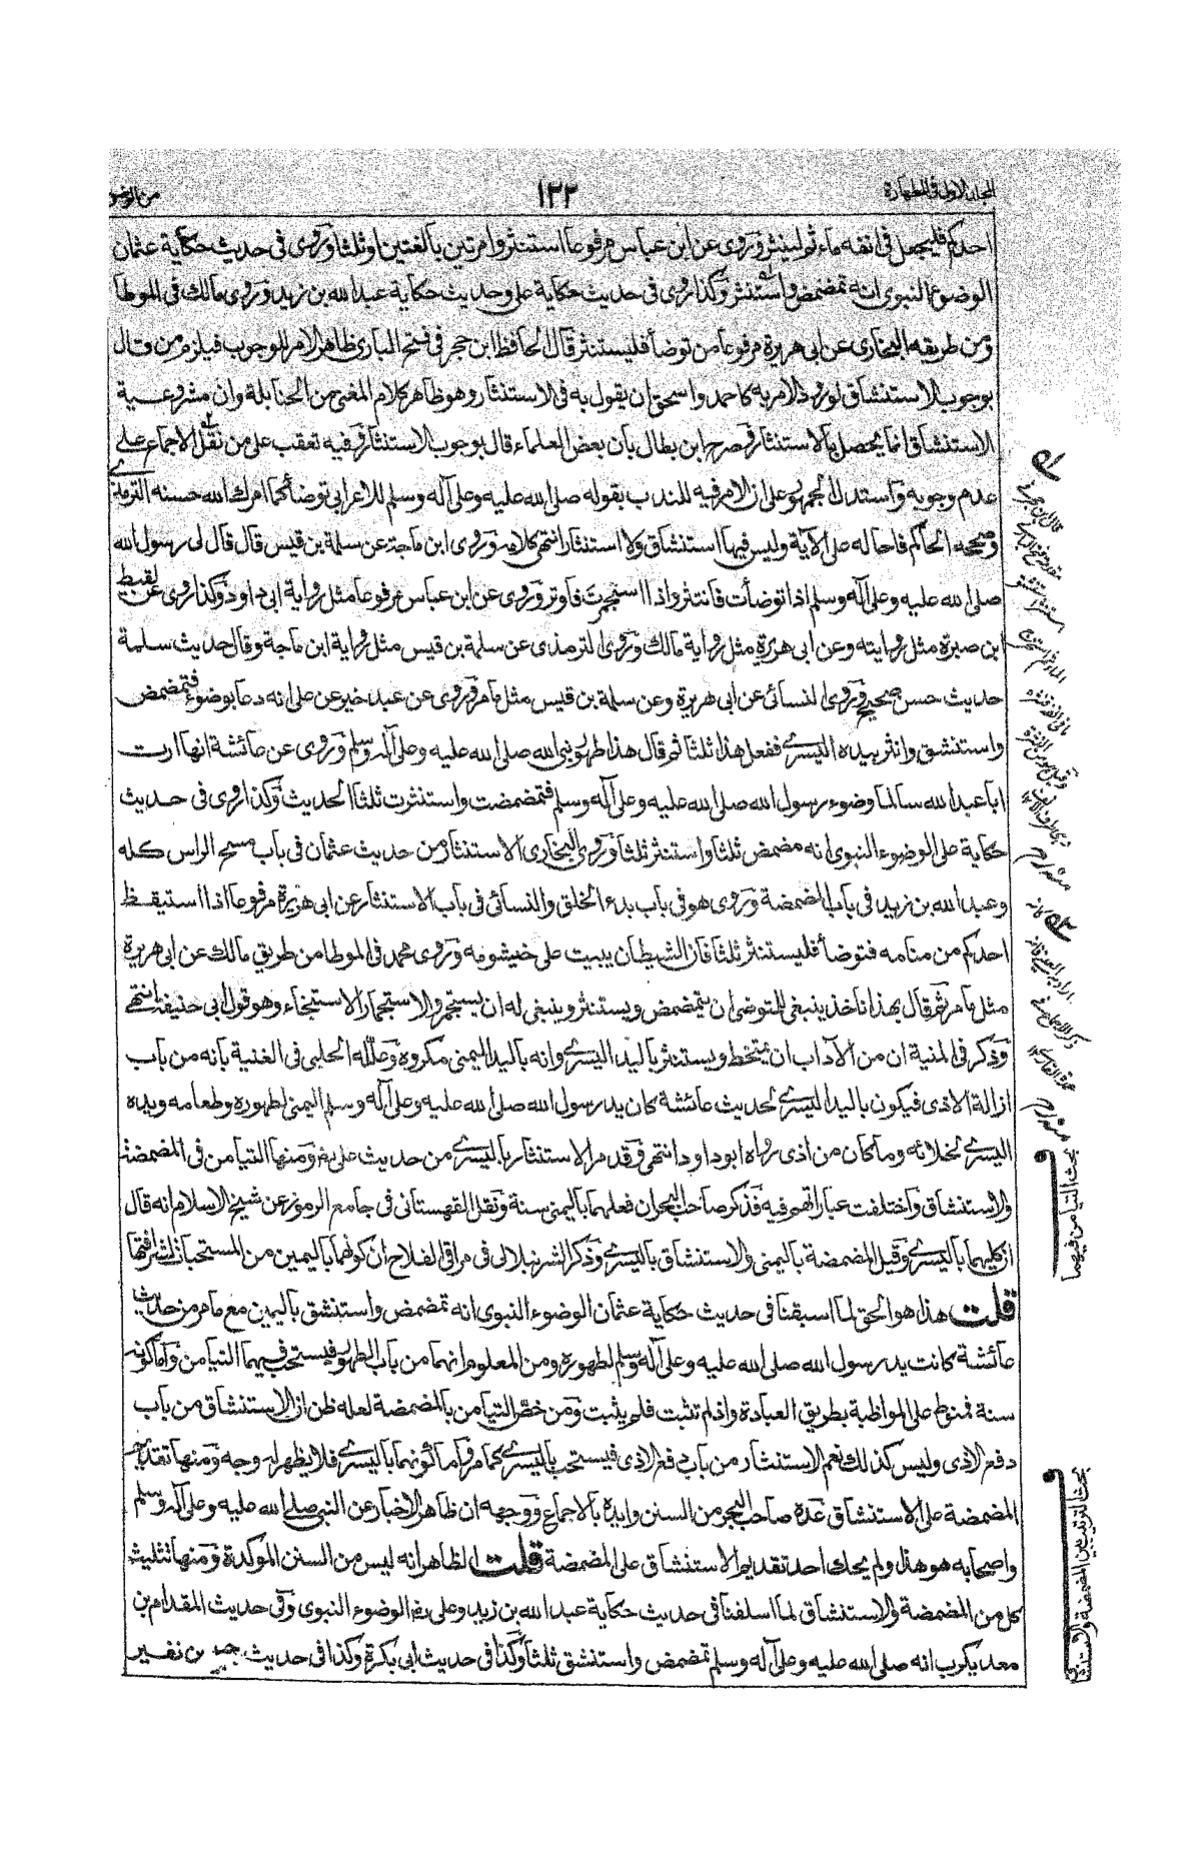 المجلد الاول فى الطهارة
١٢٢
من الوضوء
احدكم فليجعل فى انفه ماء ثم لينثر وروى عن ابن عباس مرفوعا استنثروا مرتين بالغتين او ثلثا وروى فى حديث حكاية عثمان
الوضوء النبوى انه تمضمض واستنثر وكذا روى فى حديث حكاية على وحديث حكاية عبد الله بن زيد وروى مالك فى الموطا
ومن طريقه البخارى عن ابى هريرة مرفوعا من توضأ فليستنثر قال الحافظ ابن حجر فى فتح البارى ظاهر الامر للوجوب فيلزم من قال
بوجوب الاستنشاق لورود الامر به كاحمد واسحق ان يقول به فى الاستنثار وهو ظاهر كلام المغنى من الحنابلة وان مشروعية
الاستنشاق انما يحصل بالاستنثار وصرح ابن بطال بأن بعض العلماء قال بوجوب الاستنثار وفيه تعقب على من نقل الاجماع على
عدم وجوبه واستدل الجمهور على ان الامر فيه للندب بقوله صلى الله عليه وعلى آله وسلم للاعرابى توضأ كما امرك الله حسنه الترمذى
وصححه الحاكم فاحاله على الآية وليس فيها استنشاق ولا استنثار انتهى كلامه وروى ابن ماجة عن سلمة بن قيس قال قال لى رسول الله
صلى الله عليه وعلى آله وسلم اذا توضأت فانتثر واذا استجمرت فأوتر وروى عن ابن عباس مرفوعا مثل رواية ابى داود وكذا روى عن لقيط
ابن صبرة مثل روايته وعن ابى هريرة مثل رواية مالك وروى الترمذى عن سلمة بن قيس مثل رواية ابن ماجة وقال حديث سلمة
حديث حسن صحيح وروى النسائى عن ابى هريرة وعن سلمة بن قيس مثل ما مر وروى عن عبد خير عن على انه دعا بوضوء فتمضمض
واستنشق وانثر بيده اليسرى ففعل هذا ثلثا ثم قال هذا طهور نبى الله صلى الله عليه وعلى آله وسلم وروى عن عائشة انها ارت
ابا عبد الله سالما وضوء رسول الله صلى الله عليه وعلى آله وسلم فتمضمضت واستنثرت ثلثا الحديث وكذا روى فى حديث
حكاية على الوضوء النبوى انه مضمض ثلثا واستنثر ثلثا وروى البخارى الاستنثار من حديث عثمان فى باب مسح الراس كله
وعبد الله بن زيد فى باب المضمضة وروى هو فى باب بدء الخلق والنسائى فى باب الاستنثار عن ابى هريرة مرفوعا اذا استيقظ
احدكم من منامه فتوضأ فليستنثر ثلثا فان الشيطان يبيت على خيشومه وروى محمد فى الموطا من طريق مالك عن ابى هريرة
مثل ما مر ثم قال بهذا ناخذ ينبغى للمتوضى ان يتمضمض ويستنثر وينبغى له ان يستجمر والاستجمار الاستنجاء وهو قول ابى حنيفة انتهى
وذكر فى المنية ان من الآداب ان يمتخط ويستنثر باليد اليسرى وانه باليد اليمنى مكروه وعلله الحلبى فى الغنية بأنه من باب
ازالة الاذى فيكون باليد اليسرى لحديث عائشة كان يد رسول الله صلى الله عليه وعلى آله وسلم اليمنى لطهوره وطعامه ويده
اليسرى لخلائه وما كان من اذى رواه ابو داود انتهى وقد مر الاستنثار باليسرى من حديث على رض ومنها التيامن فى المضمضة
والاستنشاق واختلفت عباراتهم فيه فذكر صاحب البحر ان فعلهما باليمنى سنة ونقل القهستانى فى جامع الرموز عن شيخ الاسلام انه قال
ان كليهما باليسرى وقيل المضمضة باليمنى والاستنشاق باليسرى وذكر الشرنبلالى فى مراقى الفلاح ان كونهما باليمين من المستحبات لشرافتها
قلت هذا هو الحق لما اسبقنا فى حديث حكاية عثمان الوضوء النبوى انه تمضمض واستنشق باليمين مع ما مر من حديث
عائشة كانت يد رسول الله صلى الله عليه وعلى آله وسلم لطهوره ومن المعلوم انهما من باب الطهور فيستحب فيهما التيامن واما كونه
سنة فمنوط على المواظبة بطريق العبادة واذ لم تثبت فلم يثبت ومن خص التيامن بالمضمضة لعله ظن ان الاستنشاق من باب
دفع الاذى وليس كذلك نعم الاستنثار من باب دفع الاذى فيستحب باليسرى كما مر واما كونهما باليسرى فلا يظهر له وجه ومنها تقديم
المضمضة على الاستنشاق عده صاحب البحر من السنن وايده بالاجماع ووجهه ان ظاهر الاخبار عن النبى صلى الله عليه وعلى آله وسلم
واصحابه هو هذا ولم يحك احد تقديم الاستنشاق على المضمضة قلت الظاهر انه ليس من السنن الموكدة ومنها تثليث
كل من المضمضة والاستنشاق لما اسلفنا فى حديث حكاية عبد الله بن زيد وعلى رض الوضوء النبوى وفى حديث المقدام بن
معديكرب انه صلى الله عليه وعلى آله وسلم تمضمض واستنشق ثلثا وكذا فى حديث ابى بكرة وكذا فى حديث جبير بن نفير
بحث التيامن فيهما
بحث الترتيب بين المضمضة والاستنشاق